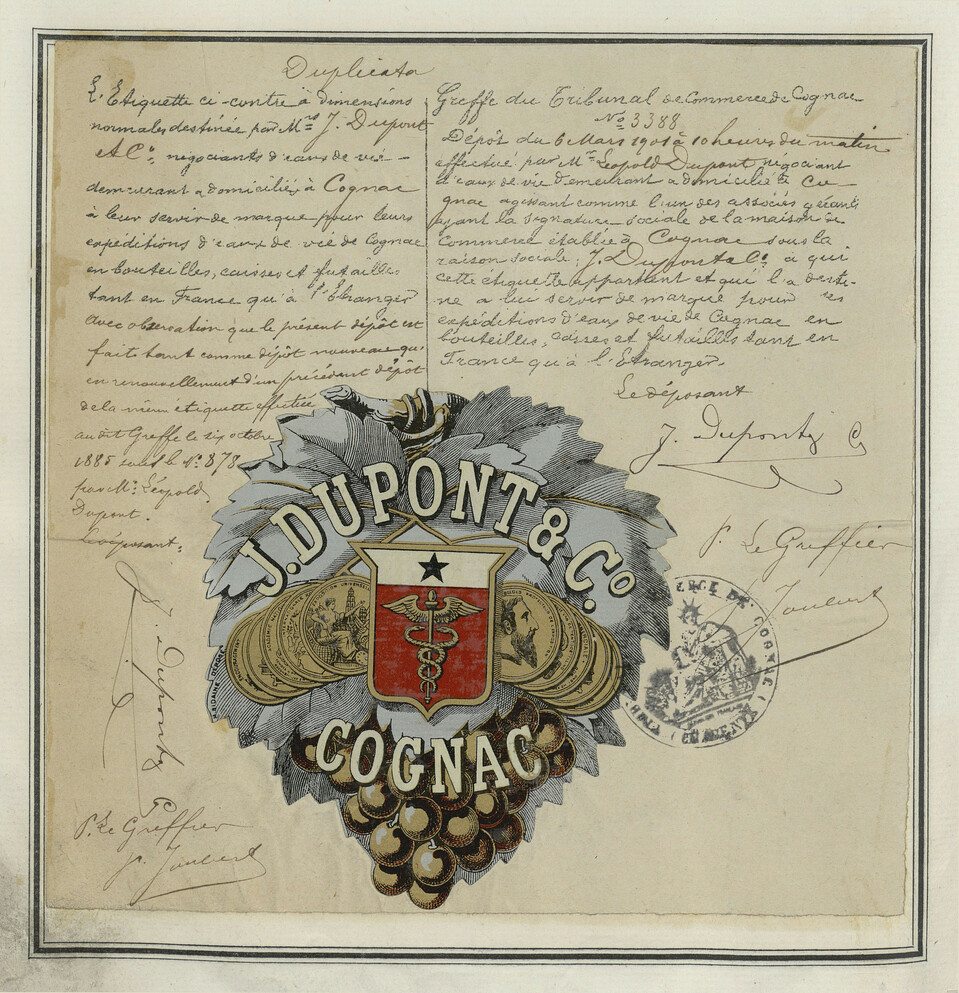 Duplicata
L'Etiquette ci-contre à dimensions
normales destinée par Mrs J. Dupont
& Co, négociants d'eaux de vie –
demeurant & domiciliés à Cognac
à leur servir de marque pour leurs
expéditions d'eaux de vie de Cognac
en bouteilles, caisses et futailles
tant en France qu'à l'Etranger
Avec observation que le présent dépôt est
fait tant comme dépôt nouveau qu'
en renouvellement d'un précédent dépôt
de la même étiquette effectuée
au dit Greffe le six octobre
1885 sous le No 878
par Mr Léopold
Dupont.
Le déposant.
J. Dupont & Co
P. Le Greffier
J. Joubert
Greffe du Tribunal de Commerce de Cognac
No 3388
Dépôt du 6 Mars 1901 à 10 heures du matin
effectué par Mr Leopold Dupont négociant
d'eaux de vie demeurant & domicilié à Co-
gnac agissant comme l'un des associés gérants
ayant la signature sociale de la maison de
commerce établie à Cognac sous la
raison sociale: J. Dupont & Co à qui
cette étiquette appartient et qui l'a desti-
né à lui servir de marque pour ses
expéditions d'eaux de vie de Cognac en
bouteilles, caisses et futailles tant en
France qu'à l'Etranger.
Le déposant
J. Dupont & Co
P. Le Greffier
Joubert
J. DUPONT & Co.
COGNAC
DÉPOSÉ
DE COGNAC